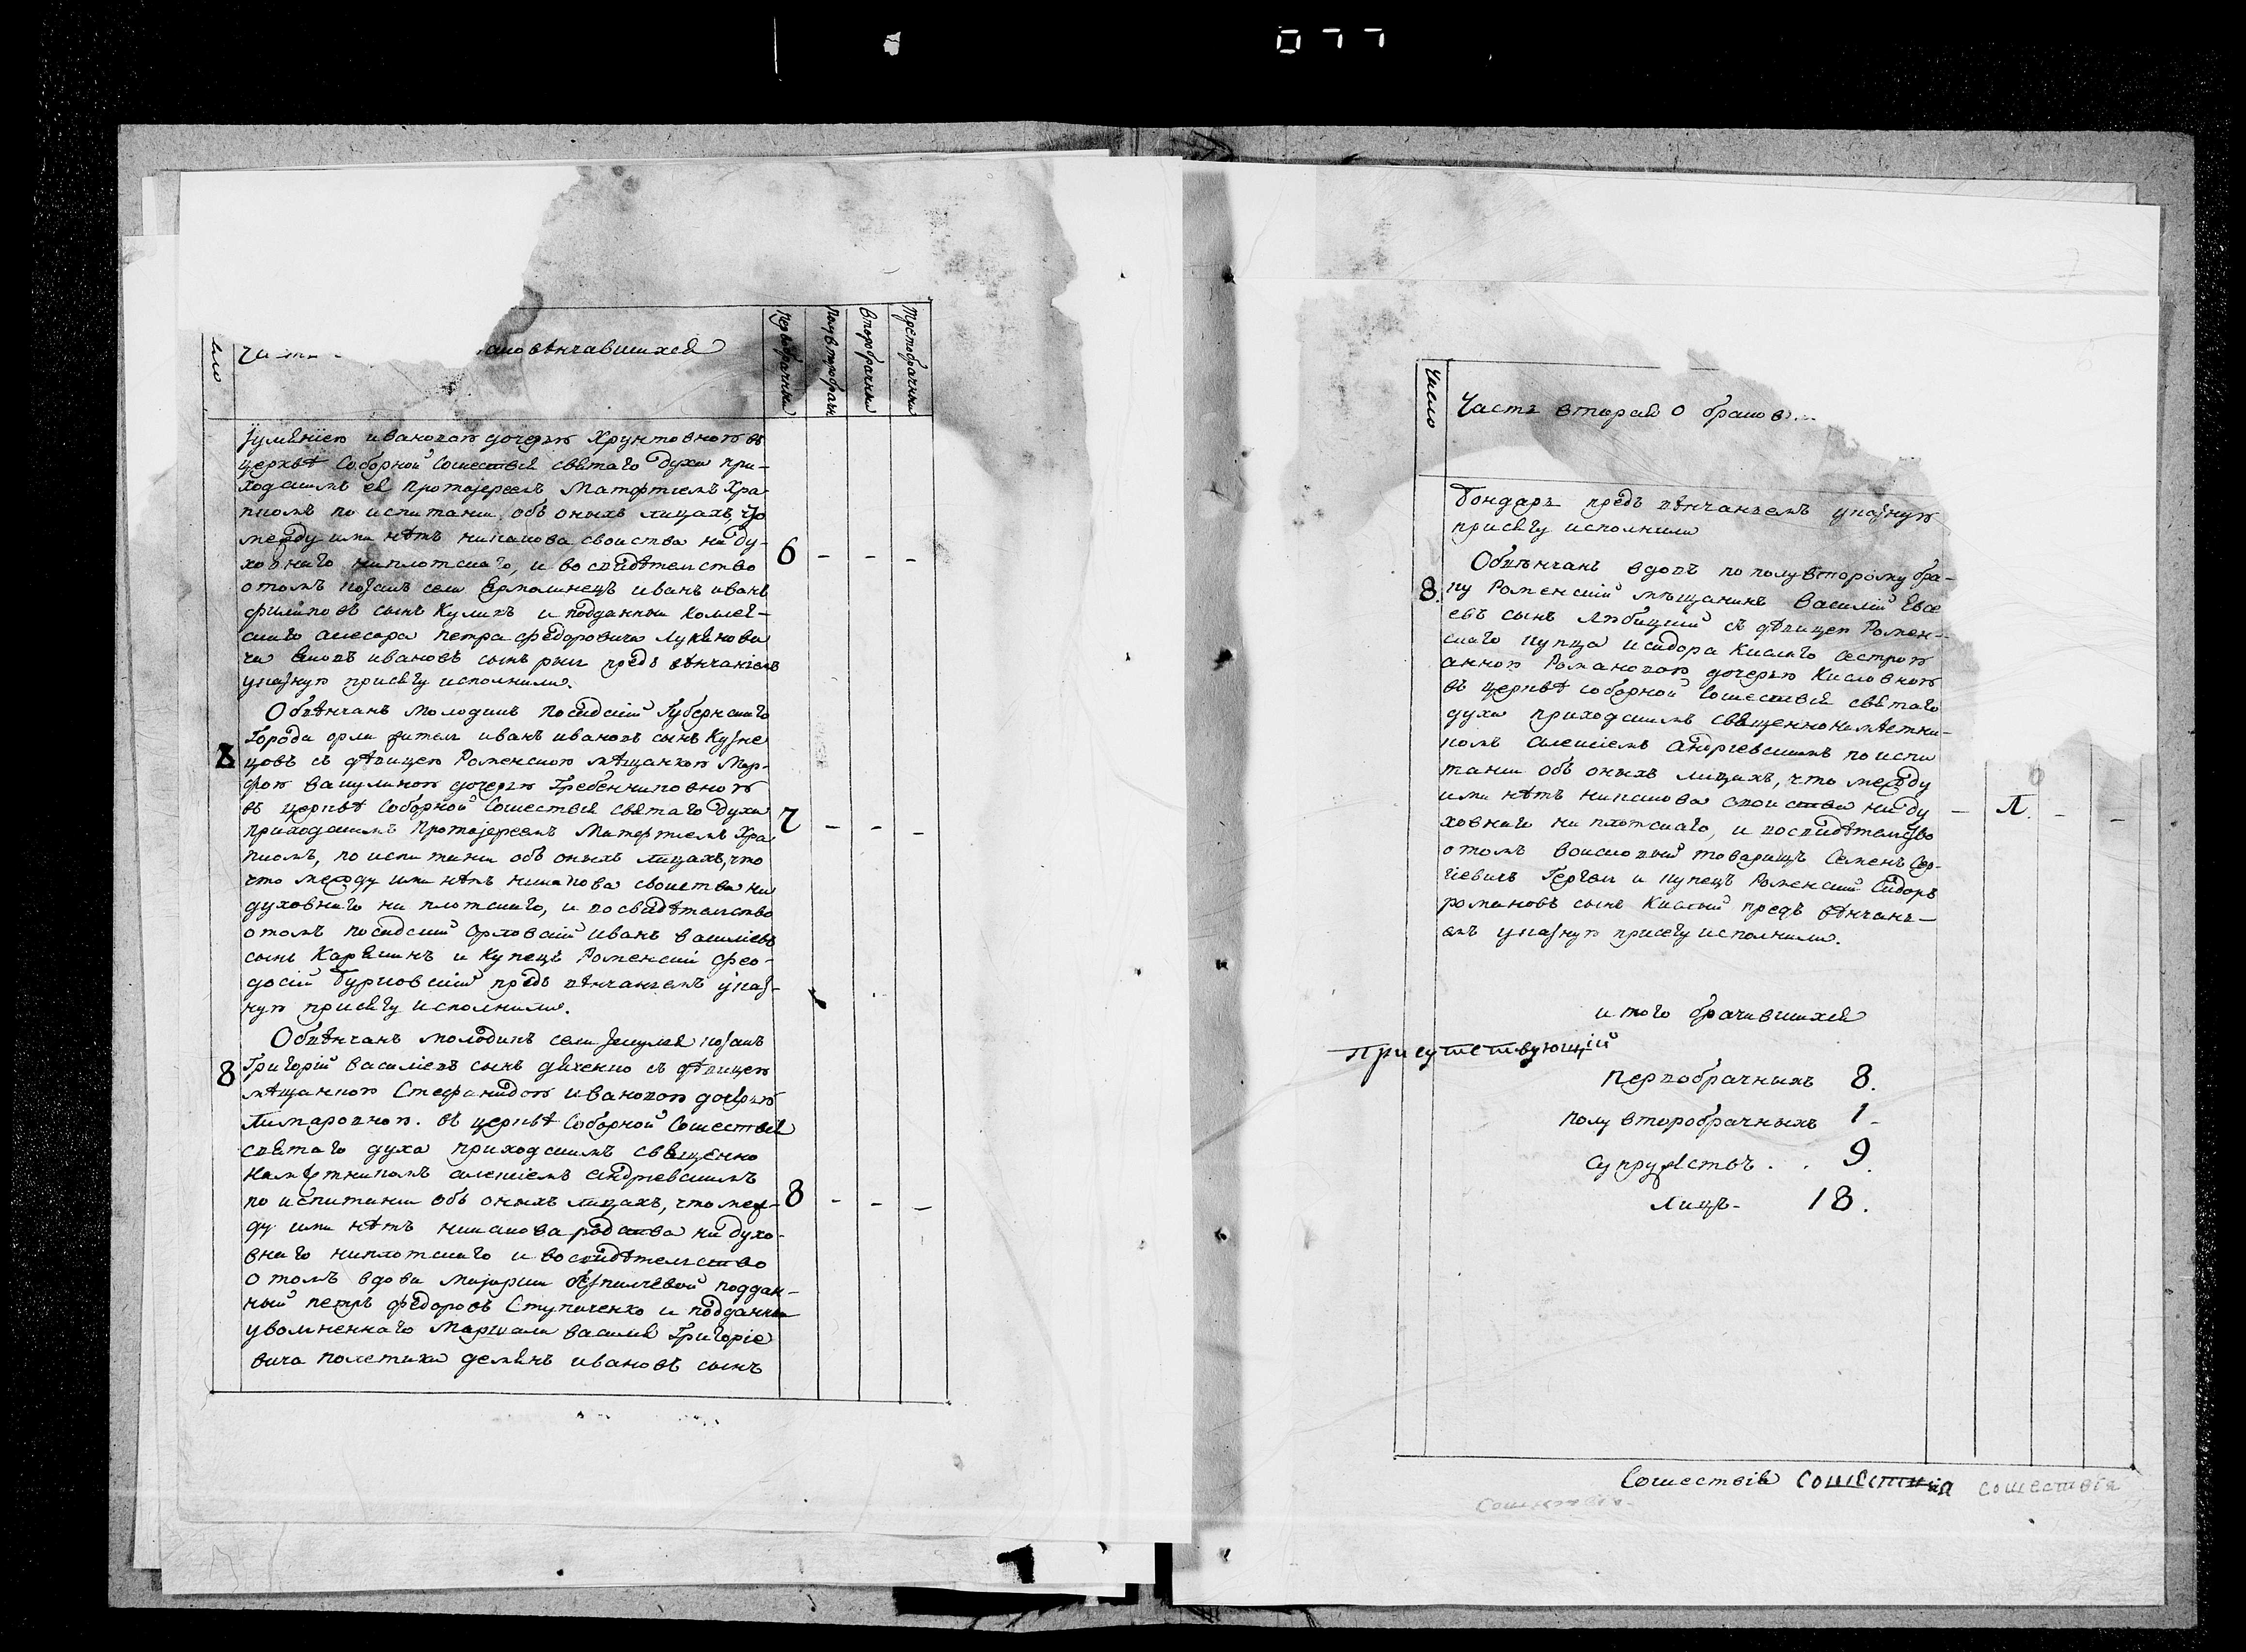 077
Часть ... бракосочѣнчавшихся
первобрачны
полувторобрачн
второбрачны
третобрачны
Ивановою дочерью Хрунтовною въ
церквѣ Соборной Сошествія святаго духа при-
ходскимъ ея Протоіереемъ Матфіемъ Хра
по испитании объ оныхъ лицахъ, что
между ими нѣтъ никакова своиства ни ду-
ховнаго ниплотскаго, и во свидѣтелство
отомъ козакъ села Ермолинецъ иванъ ивань
филиповъ сынъ Куликъ и подданный коллеж-
скаго асесора петра федоровича Лукянови
ча Яковъ ивановъ сынъ предъ вѣнчаніемъ
указную присягу исполнили.
6 - - -
Обвѣнчанъ молодикъ посадскій Губернскаго
Города орла житель иванъ ивановъ сынъ Кузне
8
цовъ съ дѣвицею Роменскою мѣщанкою Мар-
фою дочерью Гребенниковною
въ церквѣ Соборной Сошествія святаго духа
приходскимъ Протоіереемъ Матфіемъ Хра
7 - - -
по испитании объ оныхъ лицахъ, что
что между ими нѣтъ никакова своиства ни
духовнаго ни плотскаго, и во свидѣтелство
отомъ посадский Орловский иванъ василіевъ
сынъ Карякинъ и Купецъ Роменский фео-
досій предъ вѣнчаніемъ указ-
ную присягу исполнили.
Обвѣнчанъ молодикъ села козакъ
8
Григорій василіевъ сынъ съ дѣвицею
мѣщанкою Стефанидою ивановою дочерью
Лимаровною. въ церквѣ Соборной Сошествія
святаго духа приходскимъ священно
намѣстникомъ алексіемъ андріевскимъ
по испитании объ оныхъ лицахъ, что меж-
8 - - -
ду ими нѣтъ никакова родства ни духо-
внаго ниплотскаго и восвидѣтелство
отомъ вдови поддан-
ный петръ федоровъ Ступаченко и подданный
уволненнаго Маршала василія Григоріе
вича полетики демянъ ивановъ сынъ
Число
Часть вторая о браков...
Бондарь предъ вѣнчаніемъ указную
присягу исполнили
Обвѣнчанъ вдовъ по полувторому бра-
8.
ку Роменский мѣщанинъ Василій Евсе
евъ сынъ съ дѣвицею Ромен-
скаго купца исидора Кислаго сестрою
анною Романовою дочерью Кисловною
въ церквѣ соборной Сошествія святаго
духа приходскимъ священнонамѣстни-
комъ алексіемъ андріевскимъ по испи
тании объ оныхъ лицахъ, что между
ими нѣтъ никакова своиства ни ду
ховнаго ни плотскаго, и восвидѣтелство
отомъ воисковый товарищъ Семенъ Сер-
гіевичъ и купецъ Роменский Сидоръ
романовъ сынъ Кислый предъ вѣнчані-
емъ указную присягу исполнили.
и того брачившихся
присутствующій
первобрачныхъ 8.
полувторобрачныхъ 1-
супружствъ . . 9.
лицъ- 18.
Сошествія сошествія сошествія